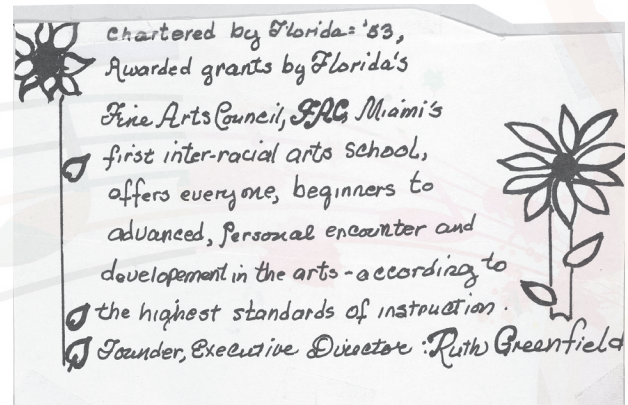 chartered by Florida: '53,
Awarded grants by Florida's
Fine Arts Council, FAC, Miami's
first inter-racial arts school,
offers everyone, beginners to
advanced, personal encounter and
developement in the arts - according to
the highest standards of instruction.
Founder, Executive Director : Ruth Greenfield